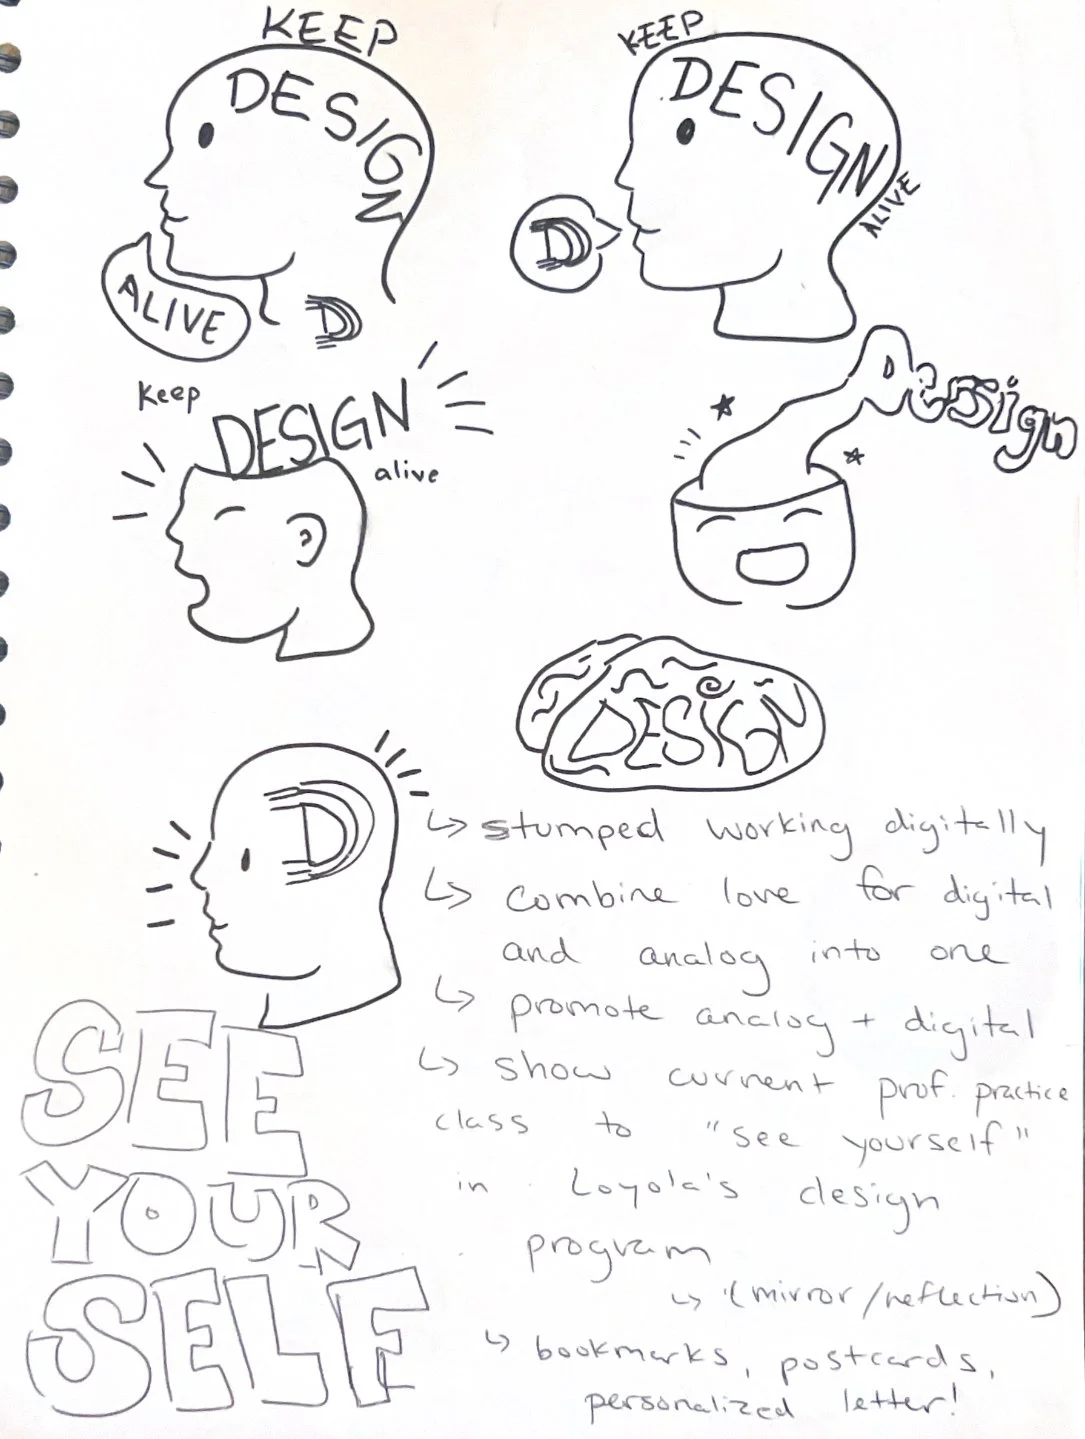 KEEP
DESIGN
ALIVE
D
KEEP
DESIGN
ALIVE
D
Keep
DESIGN
alive
Design
DESIGN
D
stumped working digitally
combine love for digital
and analog into one
promote analog + digital
show current prof. practice
class to "see yourself"
in Loyola's design
program
(mirror/reflection)
bookmarks, postcards,
personalized letter!
SEE
YOUR
SELF